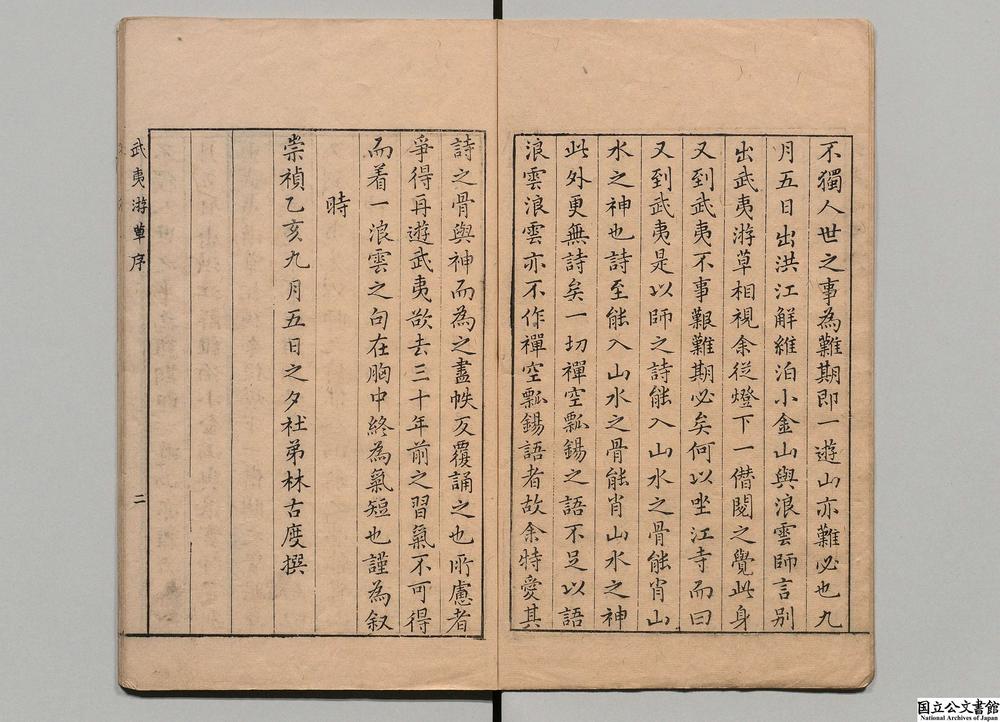 不獨人世之事為難期即一遊山亦難必也九
月五日出洪江解維泊小金山與浪雲師言別
出武夷游草相視余從燈下一僭閱之覺此身
又到武夷不事艱難期必矣何以坐江寺而曰
又到武夷是以師之詩能入山水之骨能肖山
水之神也詩至能入山水之骨能肖山水之神
此外更無詩矣一切禪空瓢錫之語不足以語
浪雲浪雲亦不作禪空瓢錫語者故余特愛其
詩之骨與神而為之盡帙反覆誦之也所慮者
爭得再遊武夷欲去三十年前之習氣不可得
而着一浪雲之句在胸中終為氣短也謹為叙
時
崇禎乙亥九月五日之夕社弟林古度撰
武夷游草序
二
国立公文書館
National Archives of Japan